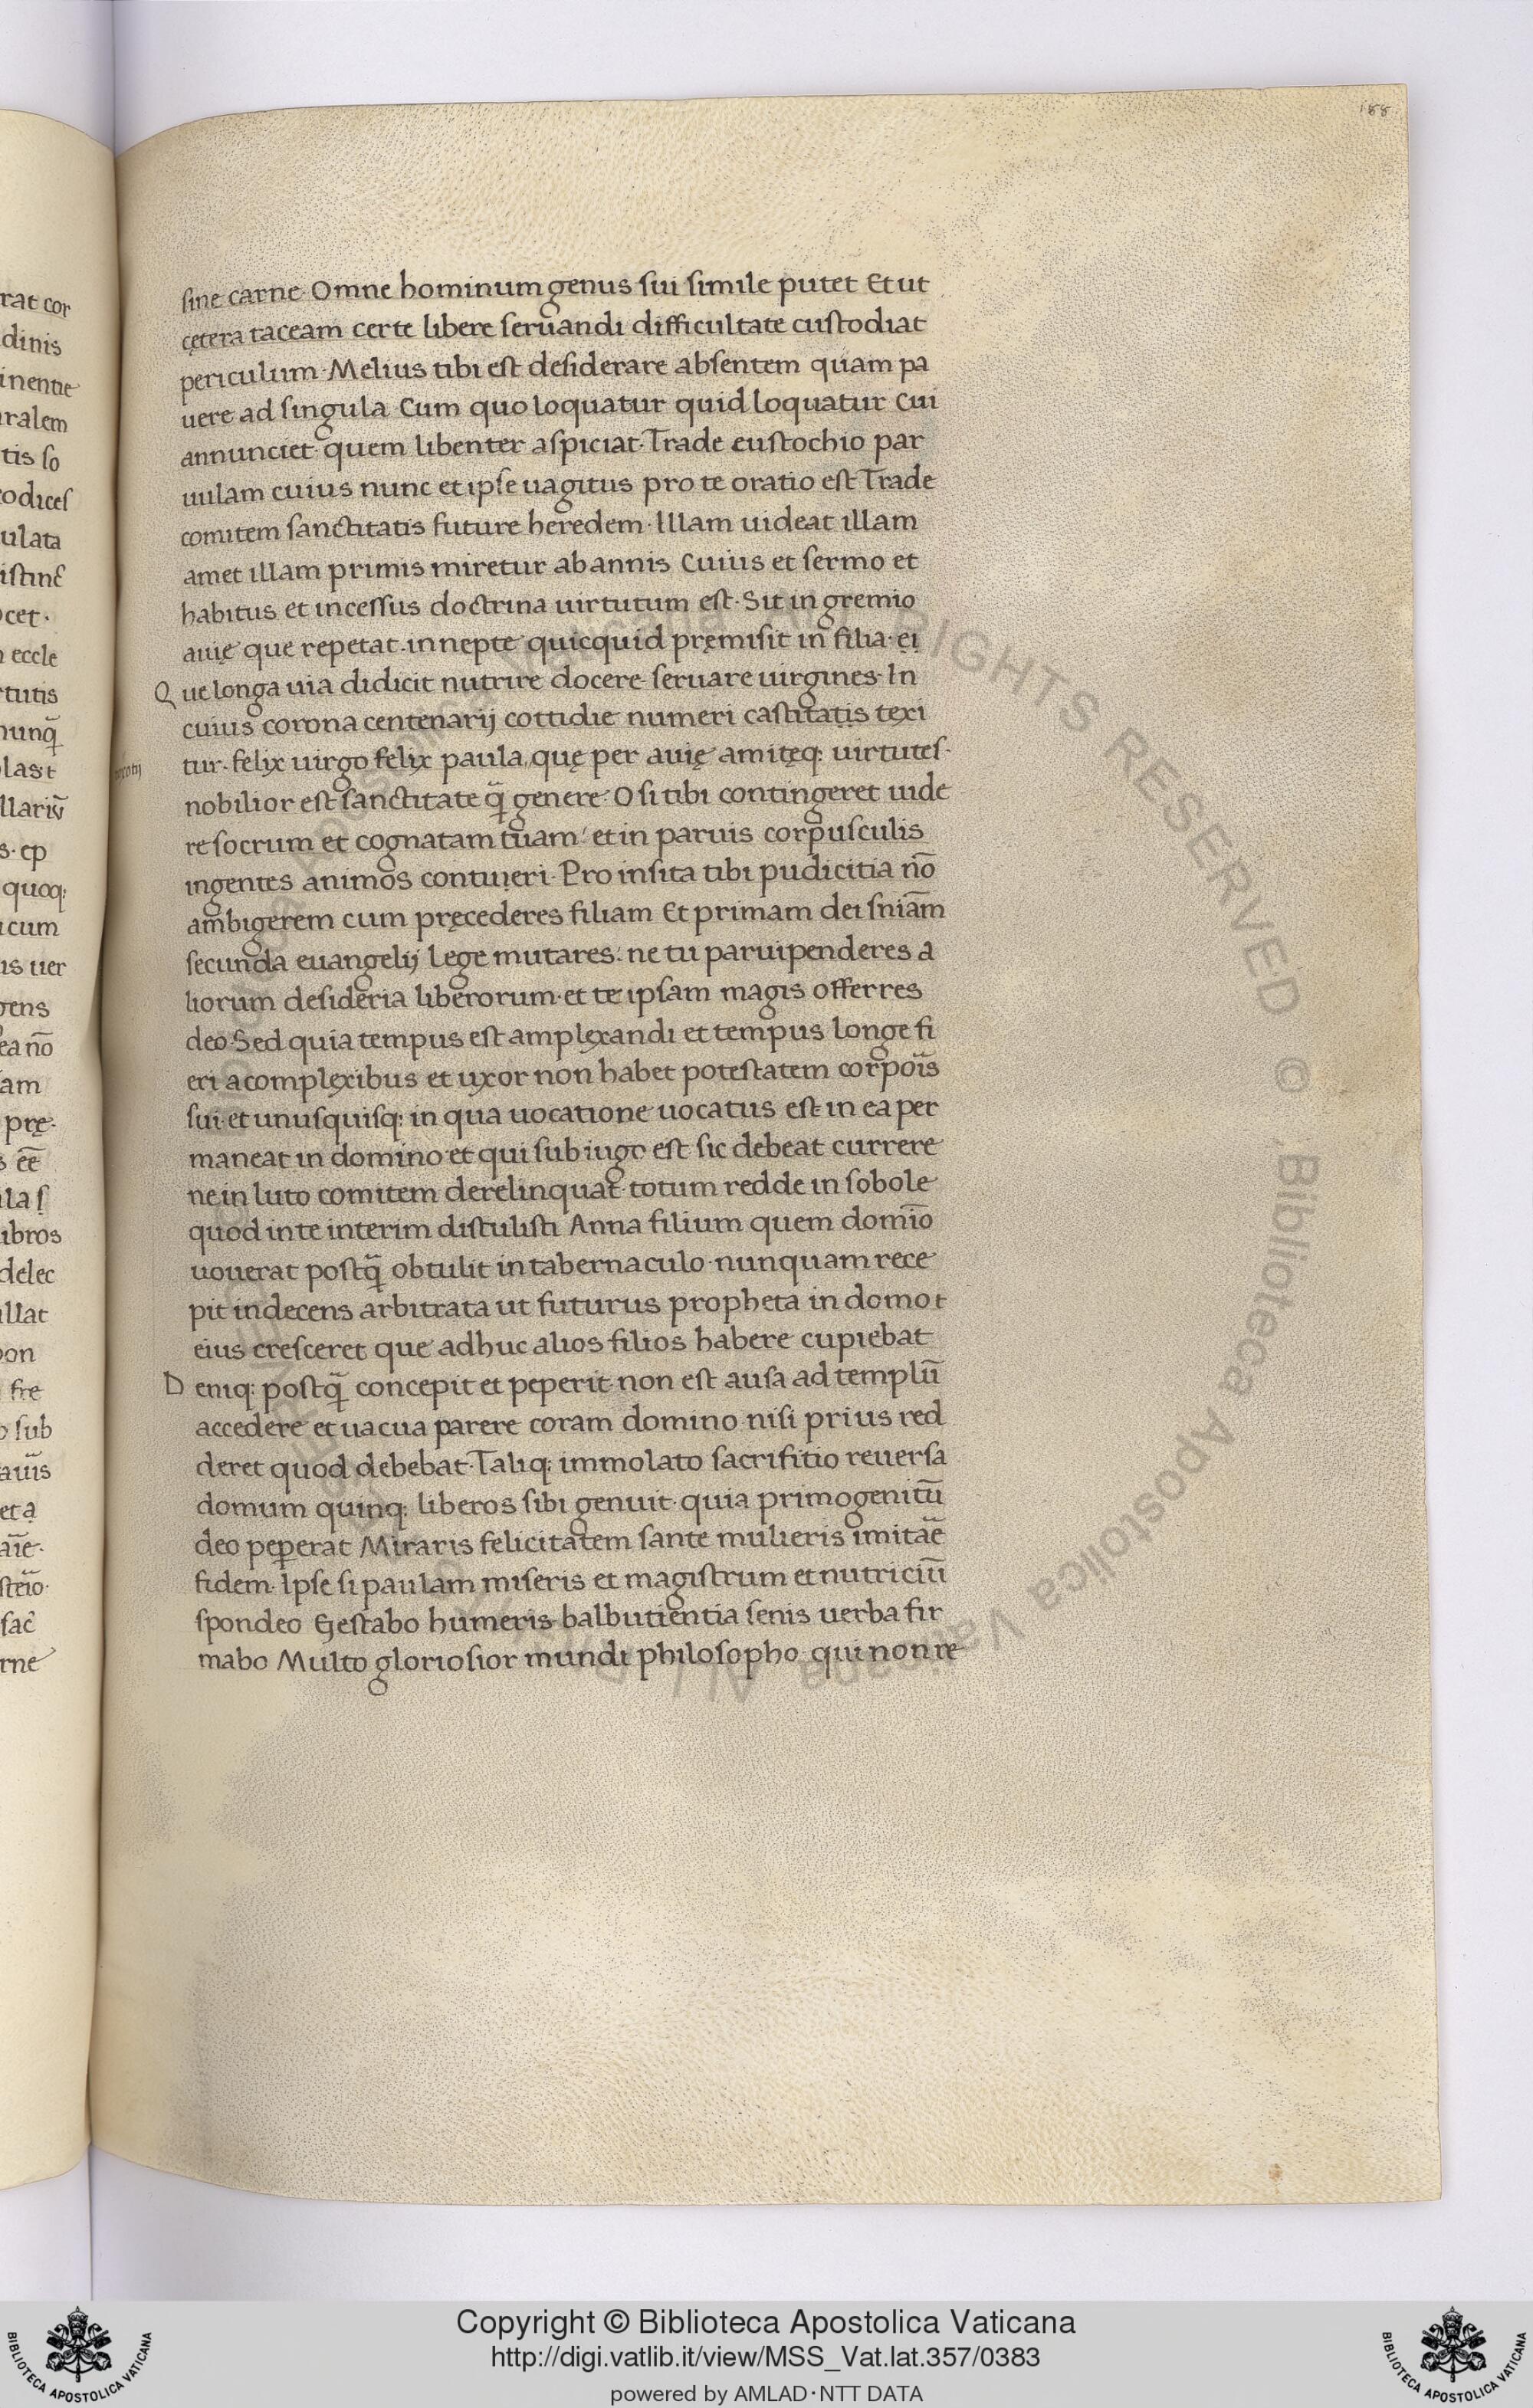 188
sine carne· Omne hominum genus sui simile putet Et ut
cętera taceam certe libere seruandi difficultate custodiat
periculum· Melius tibi est desiderare absentem quam pa
uere ad singula· Cum quo loquatur quid loquatur Cui
annunciet· quem libenter aspiciat· Trade eustochio par
uulam cuius nunc et ipse uagitus pro te oratio est Trade
comitem sanctitatis future heredem· Illam uideat illam
amet illam primis miretur ab annis Cuius et sermo et
habitus et incessus doctrina uirtutum est· Sit in gremio
auię que repetat· in nepte quicquid pręmisit in filia· ei
Que longa uia didicit nutrire docere seruare uirgines· In
cuius corona centenarij cottidie numeri castitatis texi
tur· felix uirgo felix paula, quę per auię amitęq: uirtutes·
nobilior est sanctitate q̃ genere· O si tibi contingeret uide
re socrum et cognatam tuam! et in paruis corpusculis
ingentes animos contuieri· Pro insita tibi pudicitia nō
ambigerem cum pręcederes filiam Et primam dei sniām
secunda euangelij Lege mutares· ne tu paruipenderes a
liorum desideria liberorum· et te ipsam magis offerres
deo· Sed quia tempus est amplexandi et tempus longe fi
eri a complexibus et uxor non habet potestatem corpōis
sui· et unusquisq: in qua uocatione uocatus est· in ea per
maneat in domino et qui sub iugo est sic debeat currere
ne in luto comitem derelinquat· totum redde in sobole
quod in te interim distulisti Anna filium quem domīo
uouerat postq̃ obtulit in tabernaculo· nunquam rece
pit indecens arbitrata ut futurus propheta in domo t
eius cresceret que adhuc alios filios habere cupiebat
Deniq: postq̃ concepit et peperit· non est ausa ad templū
accedere et uacua parere coram domino nisi prius red
deret quod debebat· Taliq: immolato sacrifitio reuersa
domum quinq: liberos sibi genuit· quia primogenitū
deo pepererat Miraris felicitatem sante mulieris imitāe
fidem· Ipse si paulam miseris et magistrum et nutriciū
spondeo Gestabo humeris balbutientia senis uerba fir
mabo Multo gloriosior mundi philosopho· qui non re
Copyright © Biblioteca Apostolica Vaticana
http://digi.vatlib.it/view/MSS_Vat.lat.357/0383
powered by AMLAD·NTT DATA